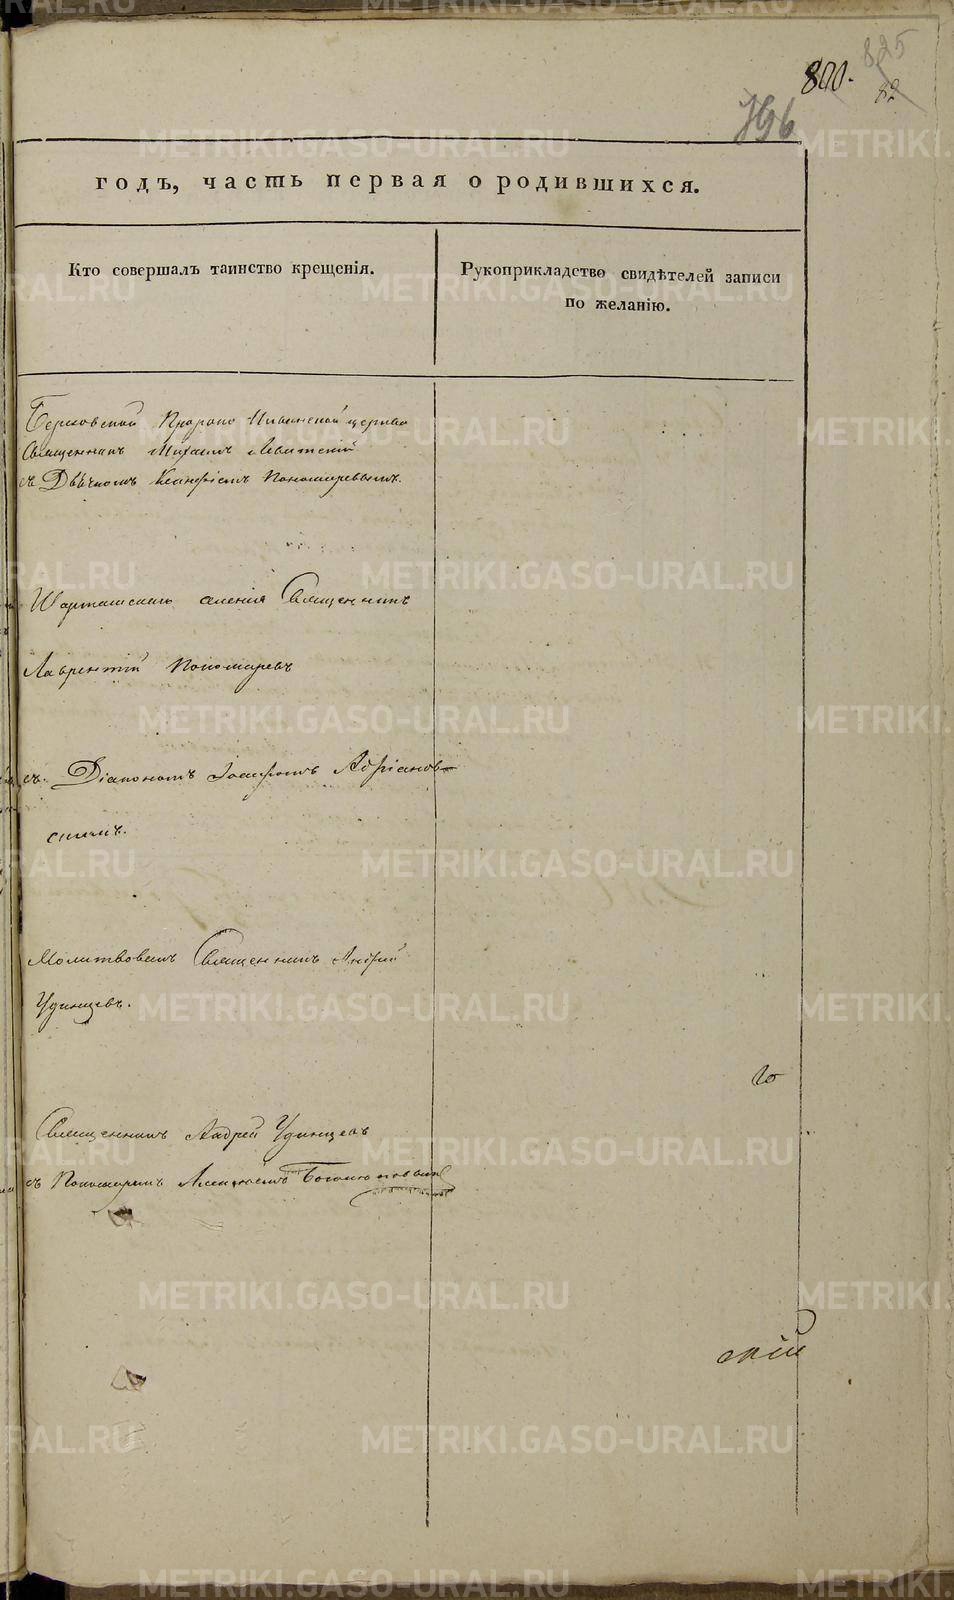 825
800.
82
796
годъ, часть первая о родившихся.
Кто совершалъ таинство крещенія.
Рукоприкладство свидѣтелей записи
по желанію.
Пророко Ильинской церкви
Священникъ Михаилъ Левитскій
съ Дьячкомъ Пономаревымъ.
Шарташскаго селенія Священникъ
Лаврентій Пономаревъ
съ Діакономъ Іоасафомъ Адріанов-
скимъ.
Молитвовалъ Священникъ Андрей
Удинцевъ.
Священникъ Андрей Удинцевъ
съ Пономаремъ Алексѣемъ
скій
METRIKI.GASO-URAL.RU